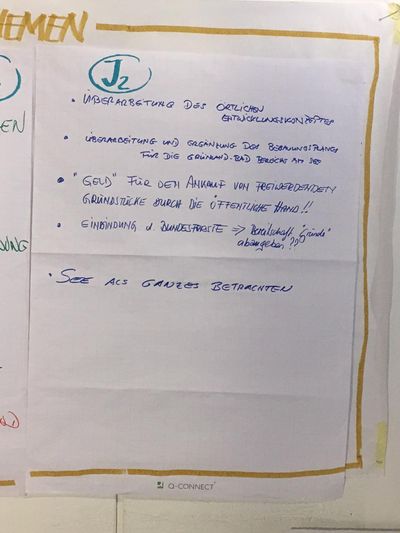 HEMEN
J2
• ÜBERARBEITUNG DES ÖRTLICHEN
ENTWICKLUNGSKONZEPTES
• ÜBERARBEITUNG UND ERGÄNZUNG DES BEBAUUNGSPLANES
FÜR DIE GRÜNLAND-BAD BEREICHE AM SEE
• "GELD" FÜR DEN ANKAUF VON FREIWERDENDEN
GRUNDSTÜCKE DURCH DIE ÖFFENTLICHE HAND!!
• EINBINDUNG d. BUNDESFORSTE => Bereitschaft "Gründe"
abzugeben??
• SEE ALS GANZES BETRACHTEN
EN
Q-CONNECT